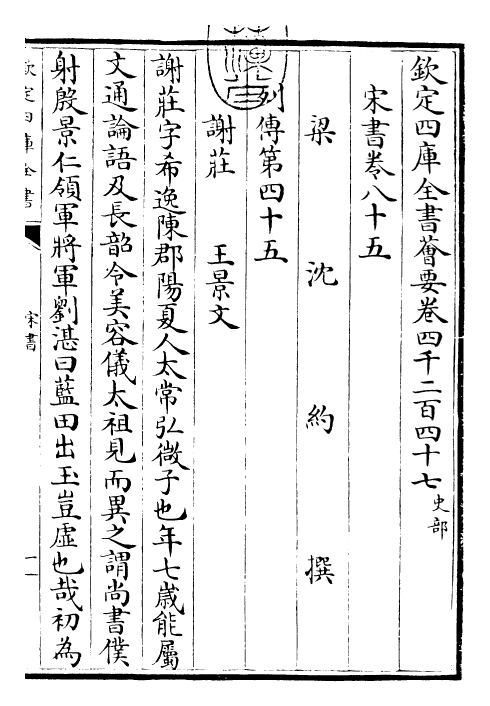 欽定四庫全書薈要卷四千二百四十七史部
宋書卷八十五
梁沈約撰
列傳第四十五
謝莊 王景文
謝莊字希逸陳郡陽夏人太常弘微子也年七歲能屬
文通論語及長韶令美容儀太祖見而異之謂尚書僕
射殷景仁領軍將軍劉湛曰藍田出玉豈虛也哉初為
欽定四庫全書
宋書
一